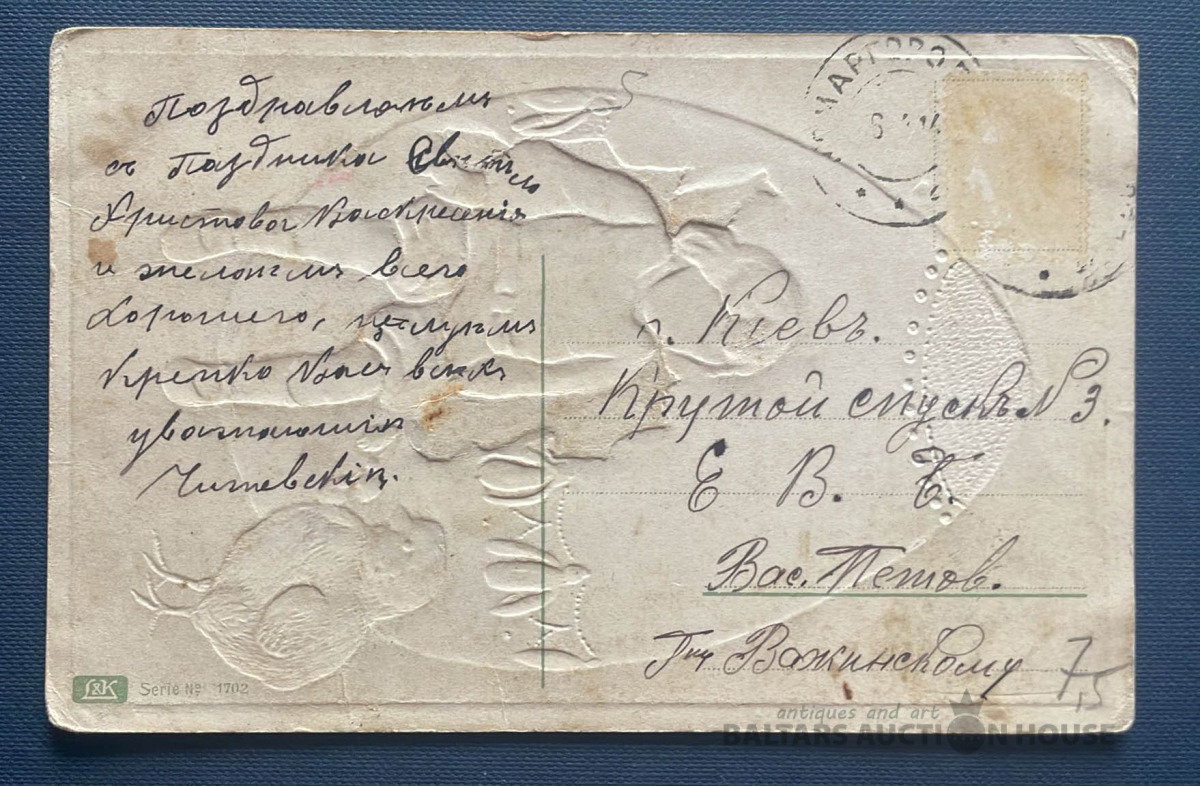 Поздравляемъ
съ Паздника Светъло
Христова Васкресенія
и желаемъ всего
Хорошего, целуемъ
Крепко Васъ всехъ
уважающій
г. Кіевъ.
Крутой спускъ № 3.
Е. В. Б.
Вас. Тетов.
Г-ну Важинскому
7,5
ШАРГОРОД
L&K Serie № 1702
antiques and art
BALTARS AUCTION HOUSE